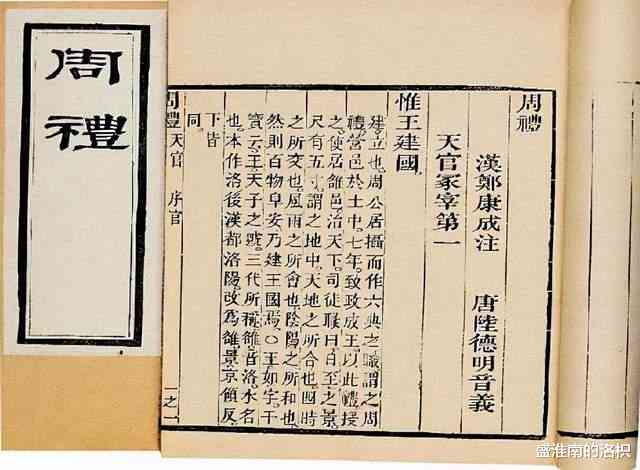 周禮
周禮
漢鄭康成注 唐陸德明音義
天官冢宰第一
惟王建國
建立也。周公居攝而作六典之職。謂之周
禮。營邑於土中。七年。致政成王以此禮授
之。使居雒邑。治天下。司徒職曰日至之景。
尺有五寸。謂之地中。天地之所合也。四時
之所交也。風雨之所會也。陰陽之所和也。
然則百物阜安。乃建王國焉。〇王如字干
寶云。王天子之號。三代所稱。雒音洛。水名
也。本作洛。後漢都洛陽。改爲雒。景京領反。
下皆
同。
周禮 天官 序官 一之一
盛淮南的洛枳